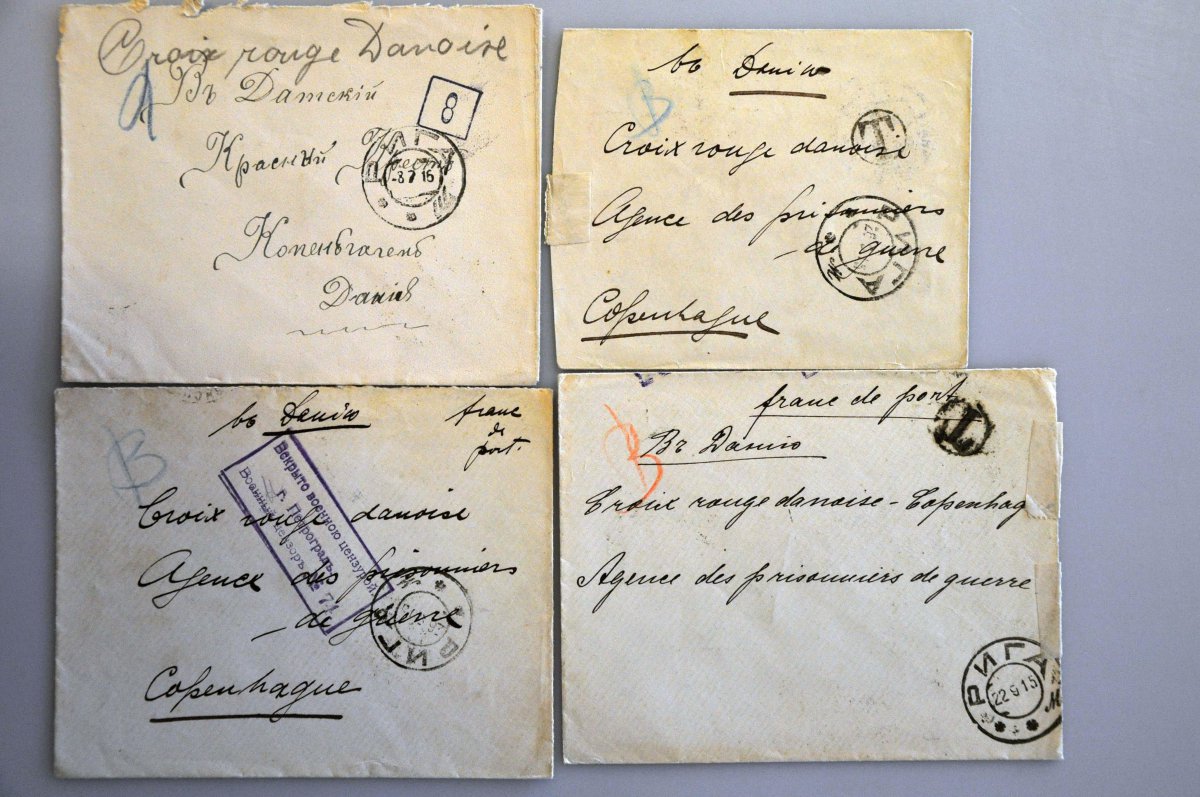 Croix rouge Danoise
Въ Датскій
8
Красный Крестъ
РИГА
-8 7 15
Копенъгагенъ
Danie
въ Данію
Т
Croix rouge danoise
Agence des prisonniers
de guerre
РИГА
Copenhague
въ Данію
franc
de
port.
Вскрыто военною цензурой.
г. Петроградъ
Военный цензоръ № 71
Croix rouge danoise
Agence des prisonniers
de guerre
РИГА
Copenhague
franc de port
Въ Данію
Croix rouge danoise - Copenhag
Agence des prisonniers de guerre
РИГА
22 9 15